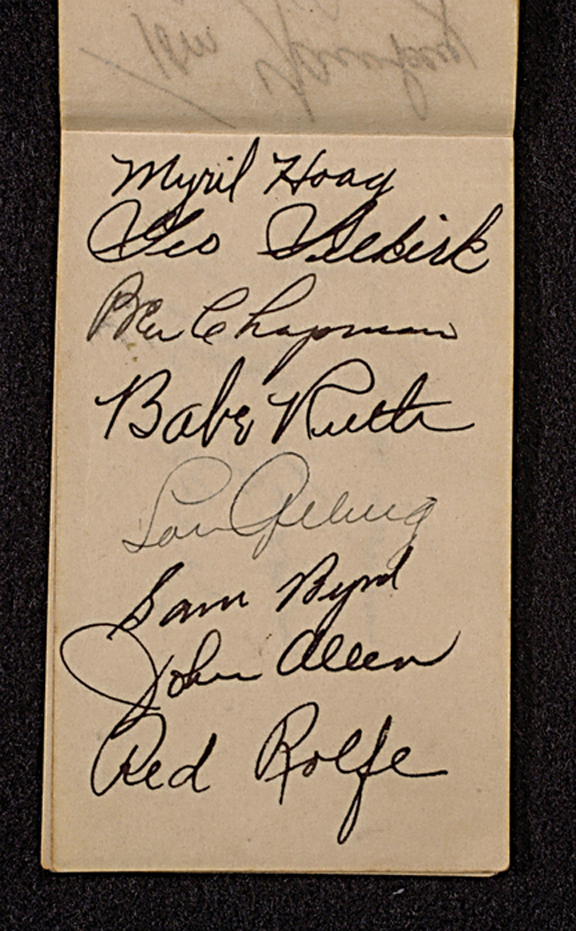 Myril Hoag
Geo Selkirk
Ben Chapman
Babe Ruth
Lou Gehrig
Sam Byrd
John Allen
Red Rolfe